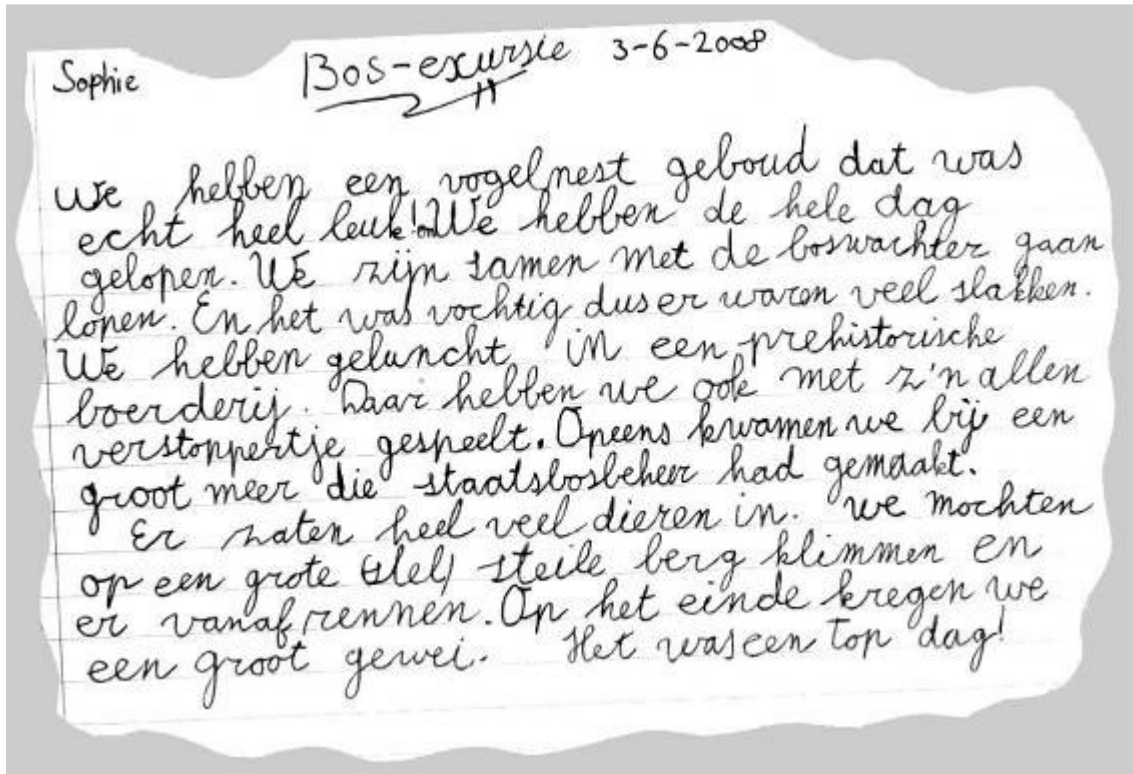 Sophie Bos-excursie 3-6-2008
We hebben een vogelnest geboud dat was
echt heel leuk! We hebben de hele dag
gelopen. We zijn samen met de boswachter gaan
lopen. En het was vochtig dus er waren veel slakken.
We hebben geluncht in een prehistorische
boerderij. Daar hebben we ook met z'n allen
verstoppertje gespeelt. Opeens kwamen we bij een
groot meer die staatsbosbeheer had gemaakt.
Er zaten heel veel dieren in. we mochten
op een grote (slel) steile berg klimmen en
er vanaf rennen. Op het einde kregen we
een groot gewei. Het was een top dag!